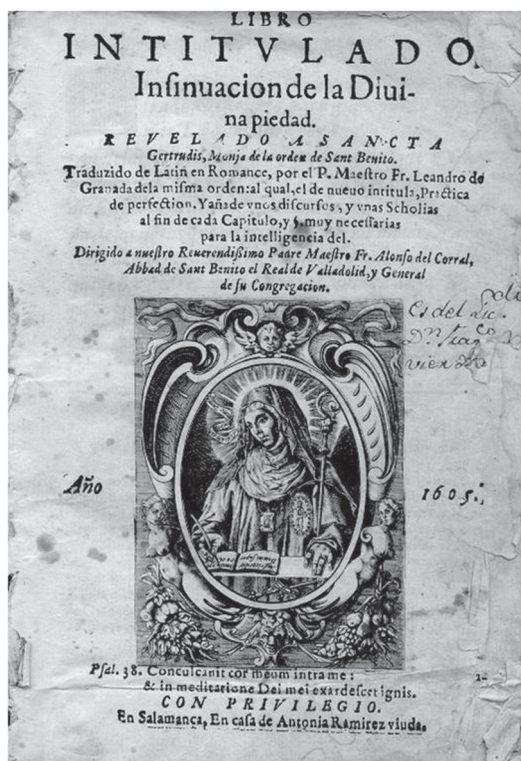 LIBRO
INTITVLADO
Insinuacion de la Diui-
na piedad.
REVELADO A SANCTA
Gertrudis, Monja de la orden de Sant Benito.
Traduzido de Latin en Romance, por el P. Maestro Fr. Leandro de
Granada dela misma orden: al qual, el de nueuo intitula, Practica
de perfection. Y añade vnos discursos, y vnas Scholias
al fin de cada Capitulo, y §. muy necessarias
para la intelligencia del.
Dirigido a nuestro Reuerendissimo Padre Maestro Fr. Alonso del Corral,
Abbad de Sant Benito el Real de Valladolid, y General
de su Congregacion.
Es del Lic.
Dn.
Año
1605.
Psal. 38. Conculcauit cor meum intra me:
& in meditatione Dei mei exardescet ignis.
CON PRIVILEGIO.
En Salamanca, En casa de Antonia Ramirez viuda.